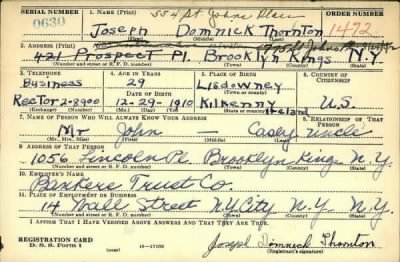 SERIAL NUMBER
1. NAME (Print)
554 St Johns Place
ORDER NUMBER
0630
Joseph Domnick Thornton
1492
(First) (Middle) (Last)
2. ADDRESS (Print)
421 Prospect Pl. Brooklyn Kings N.Y.
(Number and street or R. F. D. number) (Town) (County) (State)
3. TELEPHONE
4. AGE IN YEARS
5. PLACE OF BIRTH
6. COUNTRY OF CITIZENSHIP
Business
29
Lisdowney
DATE OF BIRTH
(Town or county)
Rector 2-8900
12-29-1910
Kilkenny Ireland
U.S.
(Exchange) (Number)
(Mo.) (Day) (Yr.)
(State or country)
7. NAME OF PERSON WHO WILL ALWAYS KNOW YOUR ADDRESS
8. RELATIONSHIP OF THAT PERSON
Mr John — Casey Uncle
(Mr., Mrs., Miss) (First) (Middle) (Last)
9. ADDRESS OF THAT PERSON
1056 Lincoln Pl. Brooklyn Kings N.Y.
(Number and street or R. F. D. number) (Town) (County) (State)
10. EMPLOYER'S NAME
Bankers Trust Co.
11. PLACE OF EMPLOYMENT OR BUSINESS
14 Wall Street N.Y.City N.Y. N.Y.
(Number and street or R. F. D. number) (Town) (County) (State)
I AFFIRM THAT I HAVE VERIFIED ABOVE ANSWERS AND THAT THEY ARE TRUE.
REGISTRATION CARD
D. S. S. Form 1
(over)
16—17105
Joseph Domnick Thornton
(Registrant's signature)